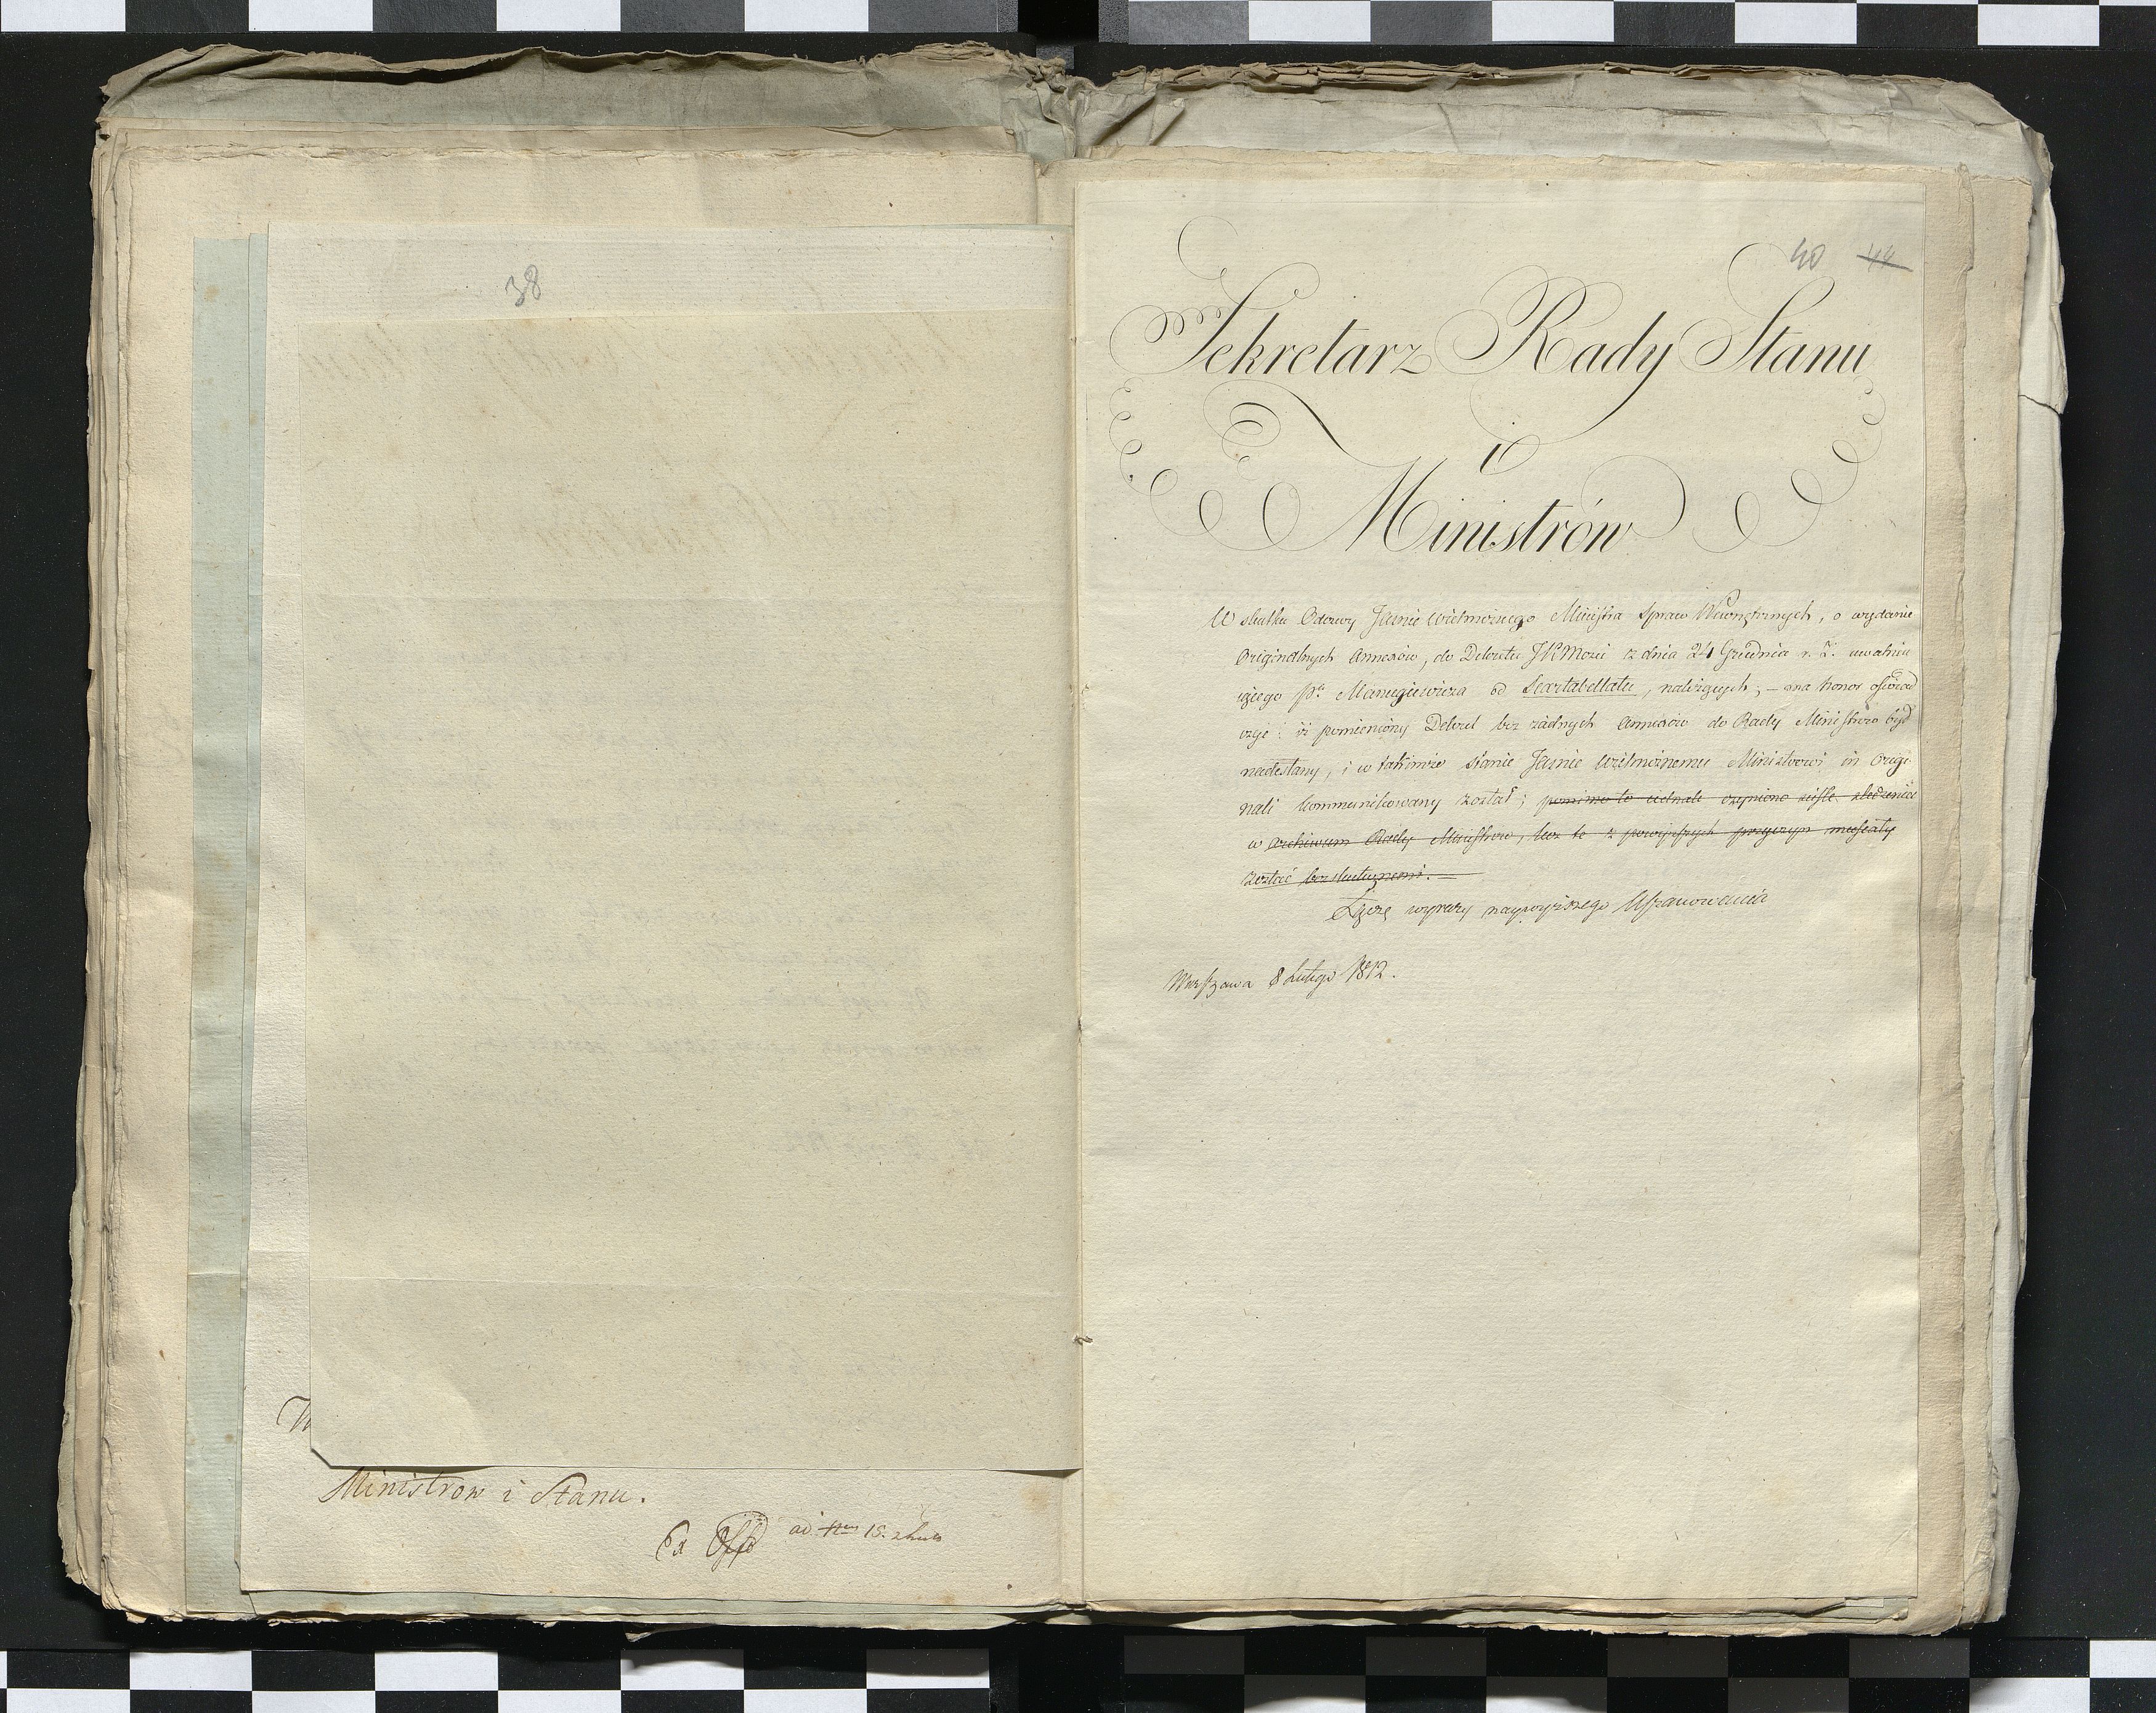 38
W
Ministrow i Stanu.
Ex Offo ad 15.
40 44
Sekretarz Rady Stanu
i
Ministrów
W skutku Odezwy Jaśnie Wielmożnego Ministra Spraw Wewnętrznych, o wydanie
Originalnych Annexów, do Dekretu JKMości z dnia 24 Grudnia r. z. uwalnia
iącego Pa Manugiewicza od Scartabellatu, należących; – ma honor oświad
czyć: iż pomieniony Dekret bez żadnych Annexów do Rady Ministrów był
nadesłany, i w takimże stanie Jaśnie Wielmożnemu Ministrowi in Origi-
nali kommunikowany został; pomimo to iednak czyniono ścisłe śledzenia
w Archiwum Rady Ministrów, lecz te z powyższych przyczyn musiały
zostać bezskutecznemi. —
Łączę wyrazy naywyższego Uszanowania
Warszawa 8 Lutego 1812.